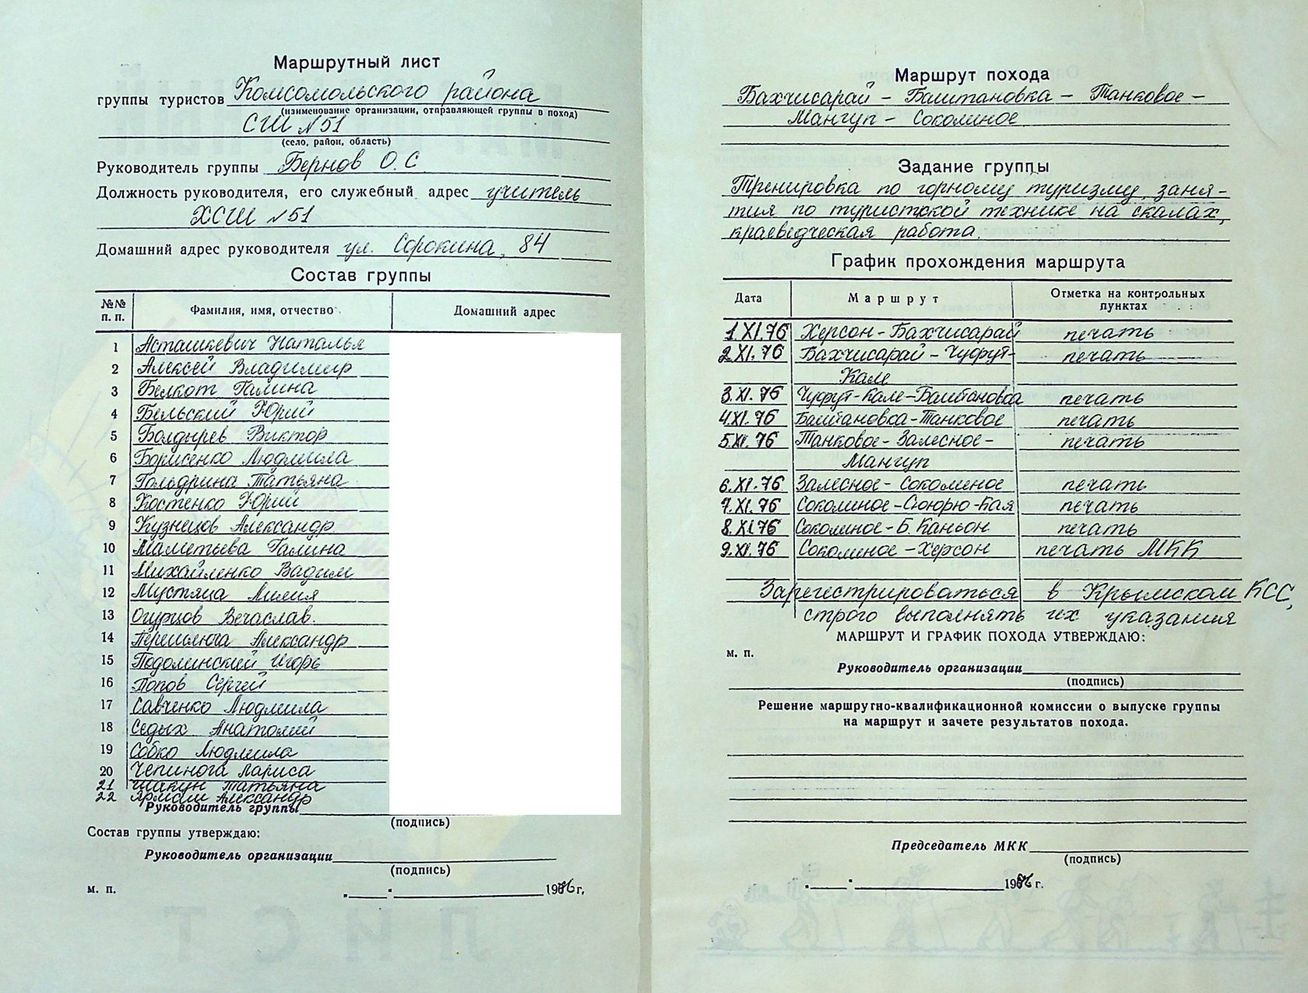 Маршрутный лист
группы туристов Комсомольского района
(наименование организации, отправляющей группы в поход)
СШ №51
(село, район, область)
Руководитель группы Бернов О.С
Должность руководителя, его служебный адрес учитель
ХСШ №51
Домашний адрес руководителя ул. Сорокина, 84
Состав группы
№№ п. п. Фамилия, имя, отчество Домашний адрес
1 Асташкевич Наталья
2 Алексей Владимир
3 Белкот Галина
4 Бельский Юрий
5 Болдырев Виктор
6 Борисенко Людмила
7 Гольдрина Татьяна
8 Костенко Юрий
9 Кузнецов Александр
10 Маметьева Галина
11 Михайленко Вадим
12 Мустяца Лилия
13 Огурцов Вечаслав.
14 Александр
15 Подолинский Игорь
16 Попов Сергей
17 Савченко Людмила
18 Седых Анатолий
19 Собко Людмила
20 Чепинога Лариса
21 Шикун Татьяна
22 Александр
Руководитель группы
(подпись)
Состав группы утверждаю:
Руководитель организации
(подпись)
м. п. 1976 г,
ЛИСТ
Маршрут похода
Бахчисарай – Баштановка – Танковое –
Мангуп – Соколиное
Задание группы
Тренировка по горному туризму, заня-
тия по туристской технике на скалах,
краеведческая работа.
График прохождения маршрута
Дата Маршрут Отметка на контрольных пунктах
1.XI.76 Херсон-Бахчисарай печать
2.XI.76 Бахчисарай – Чуфут- печать
Кале
3.XI.76 Чуфут-Кале-Баштановка печать
4.XI.76 Баштановка-Танковое печать
5.XI.76 Танковое-Залесное- печать
Мангуп
6.XI.76 Залесное-Соколиное печать
7.XI.76 Соколиное-Сююрю-Кая печать
8.XI.76 Соколиное-Б. Каньон печать
9.XI.76 Соколиное-Херсон печать МКК
Зарегестрироваться в Крымском КСС,
строго выполнять их указания
МАРШРУТ И ГРАФИК ПОХОДА УТВЕРЖДАЮ:
м. п.
Руководитель организации
(подпись)
Решение маршрутно-квалификационной комиссии о выпуске группы
на маршрут и зачете результатов похода.
Председатель МКК
(подпись)
1976 г.